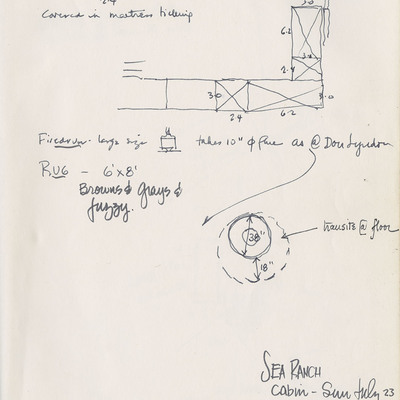 2.4
Covered in mattress ticking
3.0
6.2
3.0
2.4
3.0
2.4
6.2
3.0
Firedrum - large size takes 10" φ flue as @ Don Lyndon
RUG - 6'x8'
Browns & Grays &
fuzzy.
38"
transite @ floor
18"
SEA RANCH
Cabin - Sun July 23